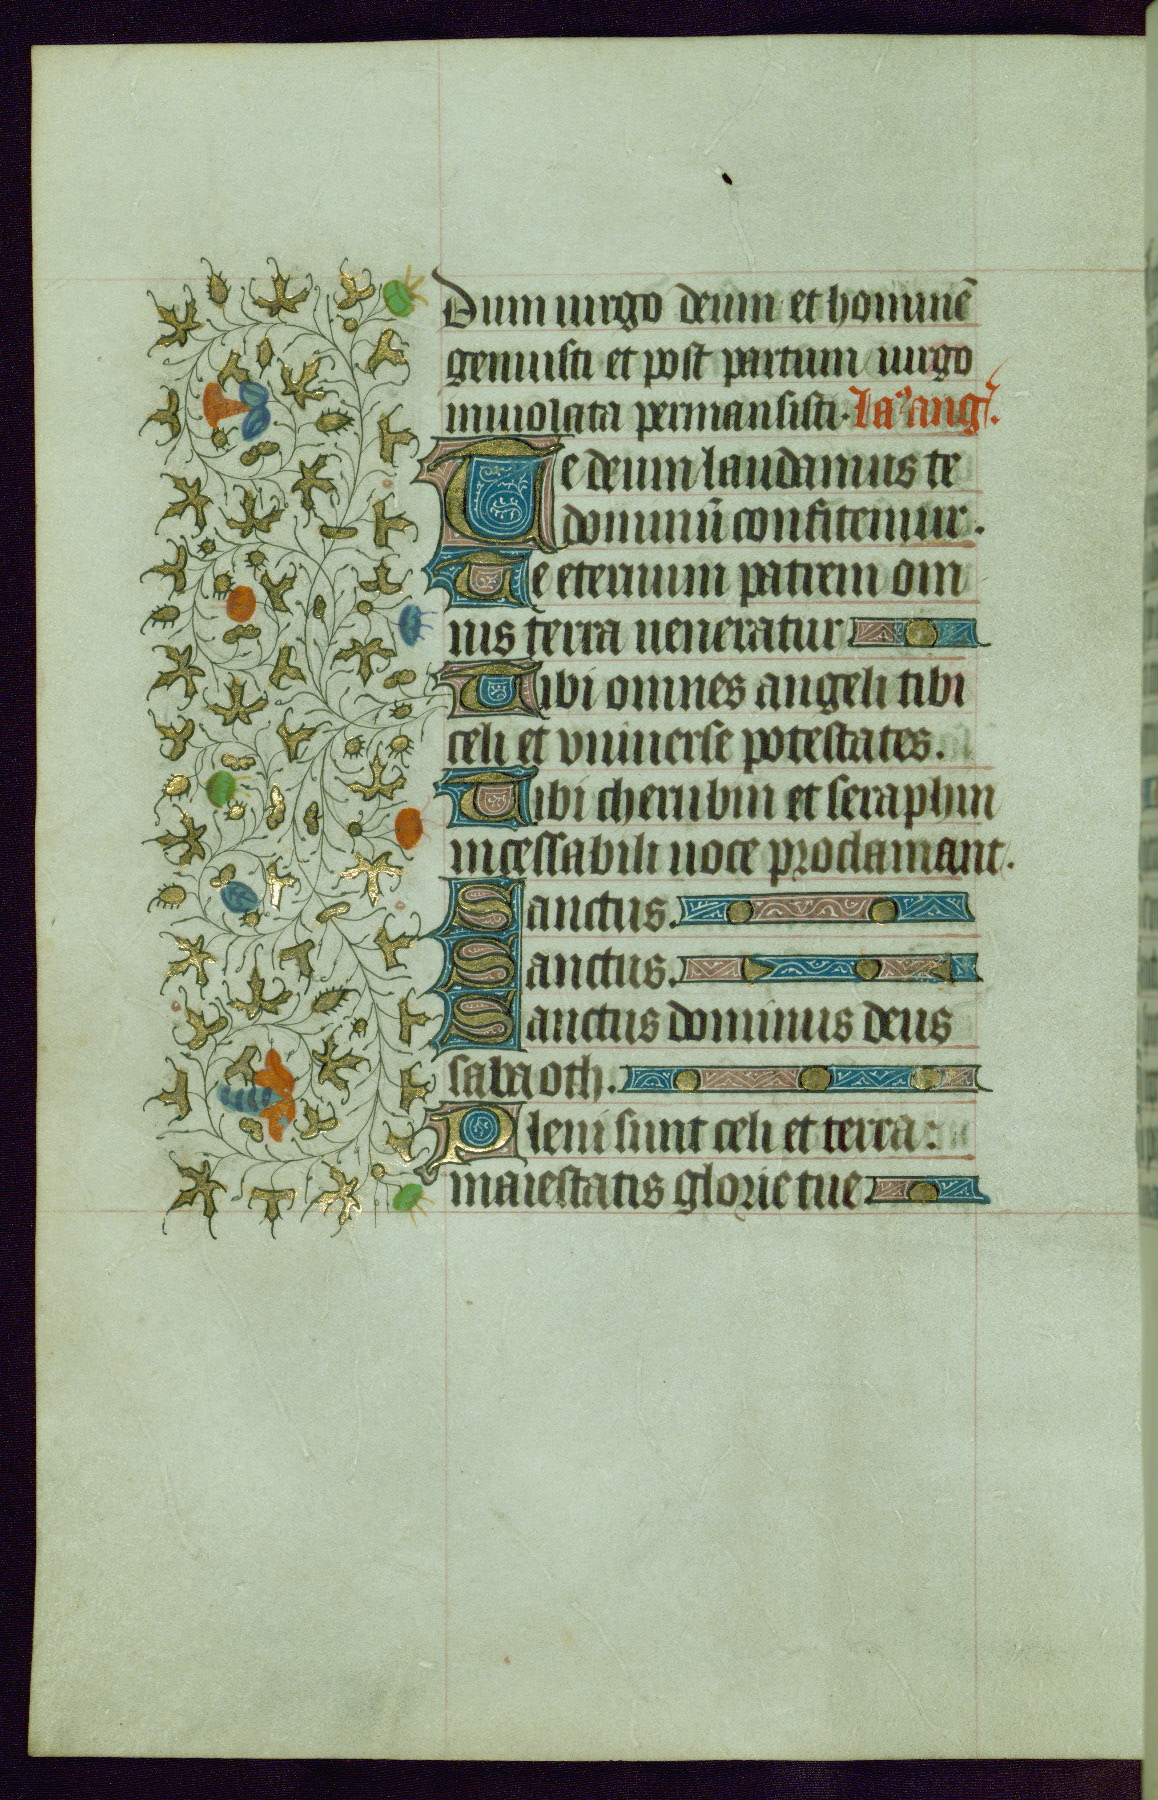 Dum uirgo deum et hominē
genuisti et post partum uirgo
inuiolata permansisti.
Te deum laudamus te
dominū confitemur.
Te eternum patrem om
nis terra ueneratur
Tibi omnes angeli tibi
celi et vniuerse potestates.
Tibi cherubin et seraphin
incessabili uoce proclamant.
Sanctus.
Sanctus.
Sanctus dominus deus
sabaoth.
Pleni sunt celi et terra:
maiestatis glorie tue